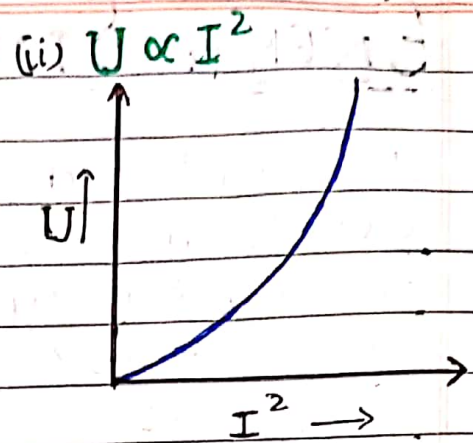 (ii) U ∝ I²
U
I²